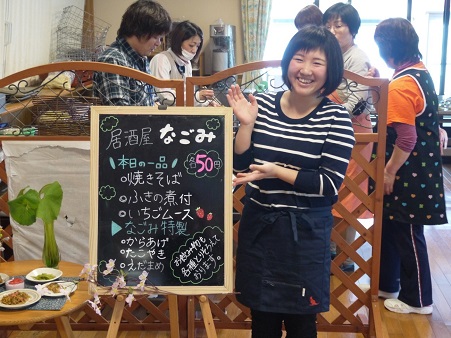 居酒屋 なごみ
各50円
本日の一品
○焼きそば
○ふきの煮付
○いちごムース
なごみ特製
○からあげ
○たこやき
○えだまめ
お飲み物も
各種とりそろえて
おります。